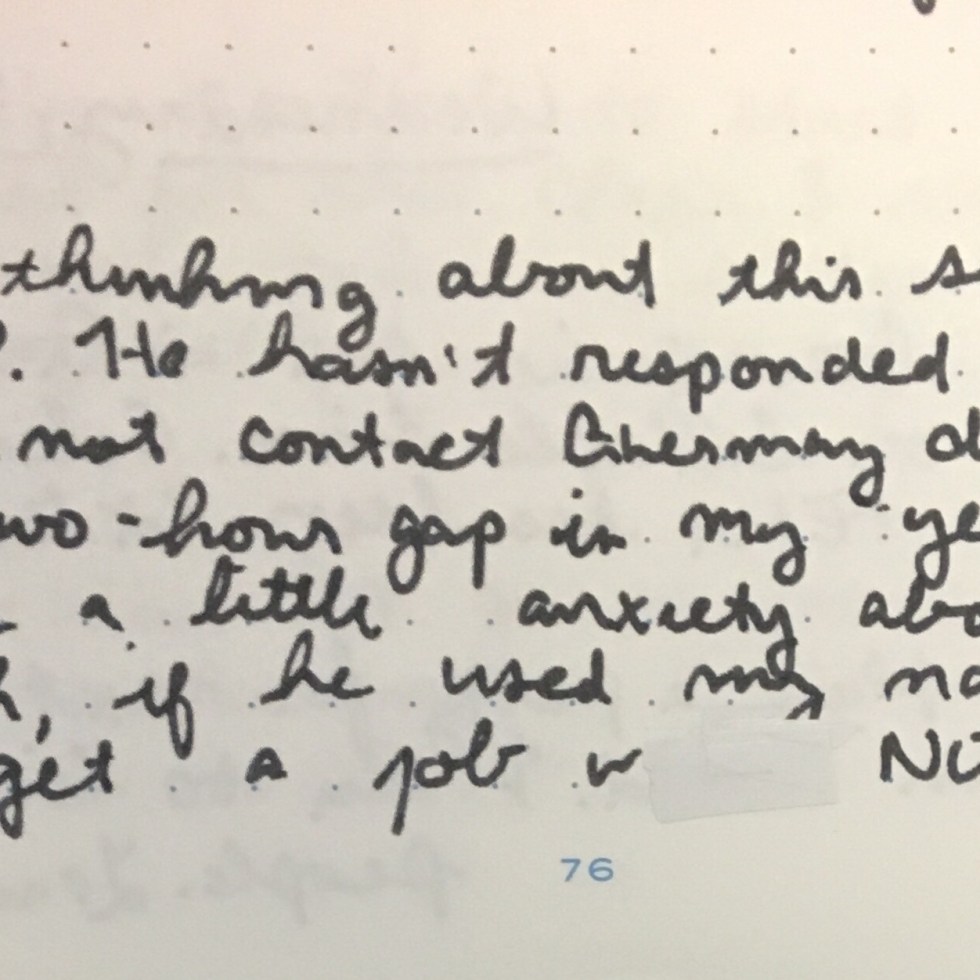 thinking about this s
. He hasn't responded
not contact Ghermay d
wo-hour gap in my ye
a little anxiety abo
h, if he used my na
get a job w NO
76